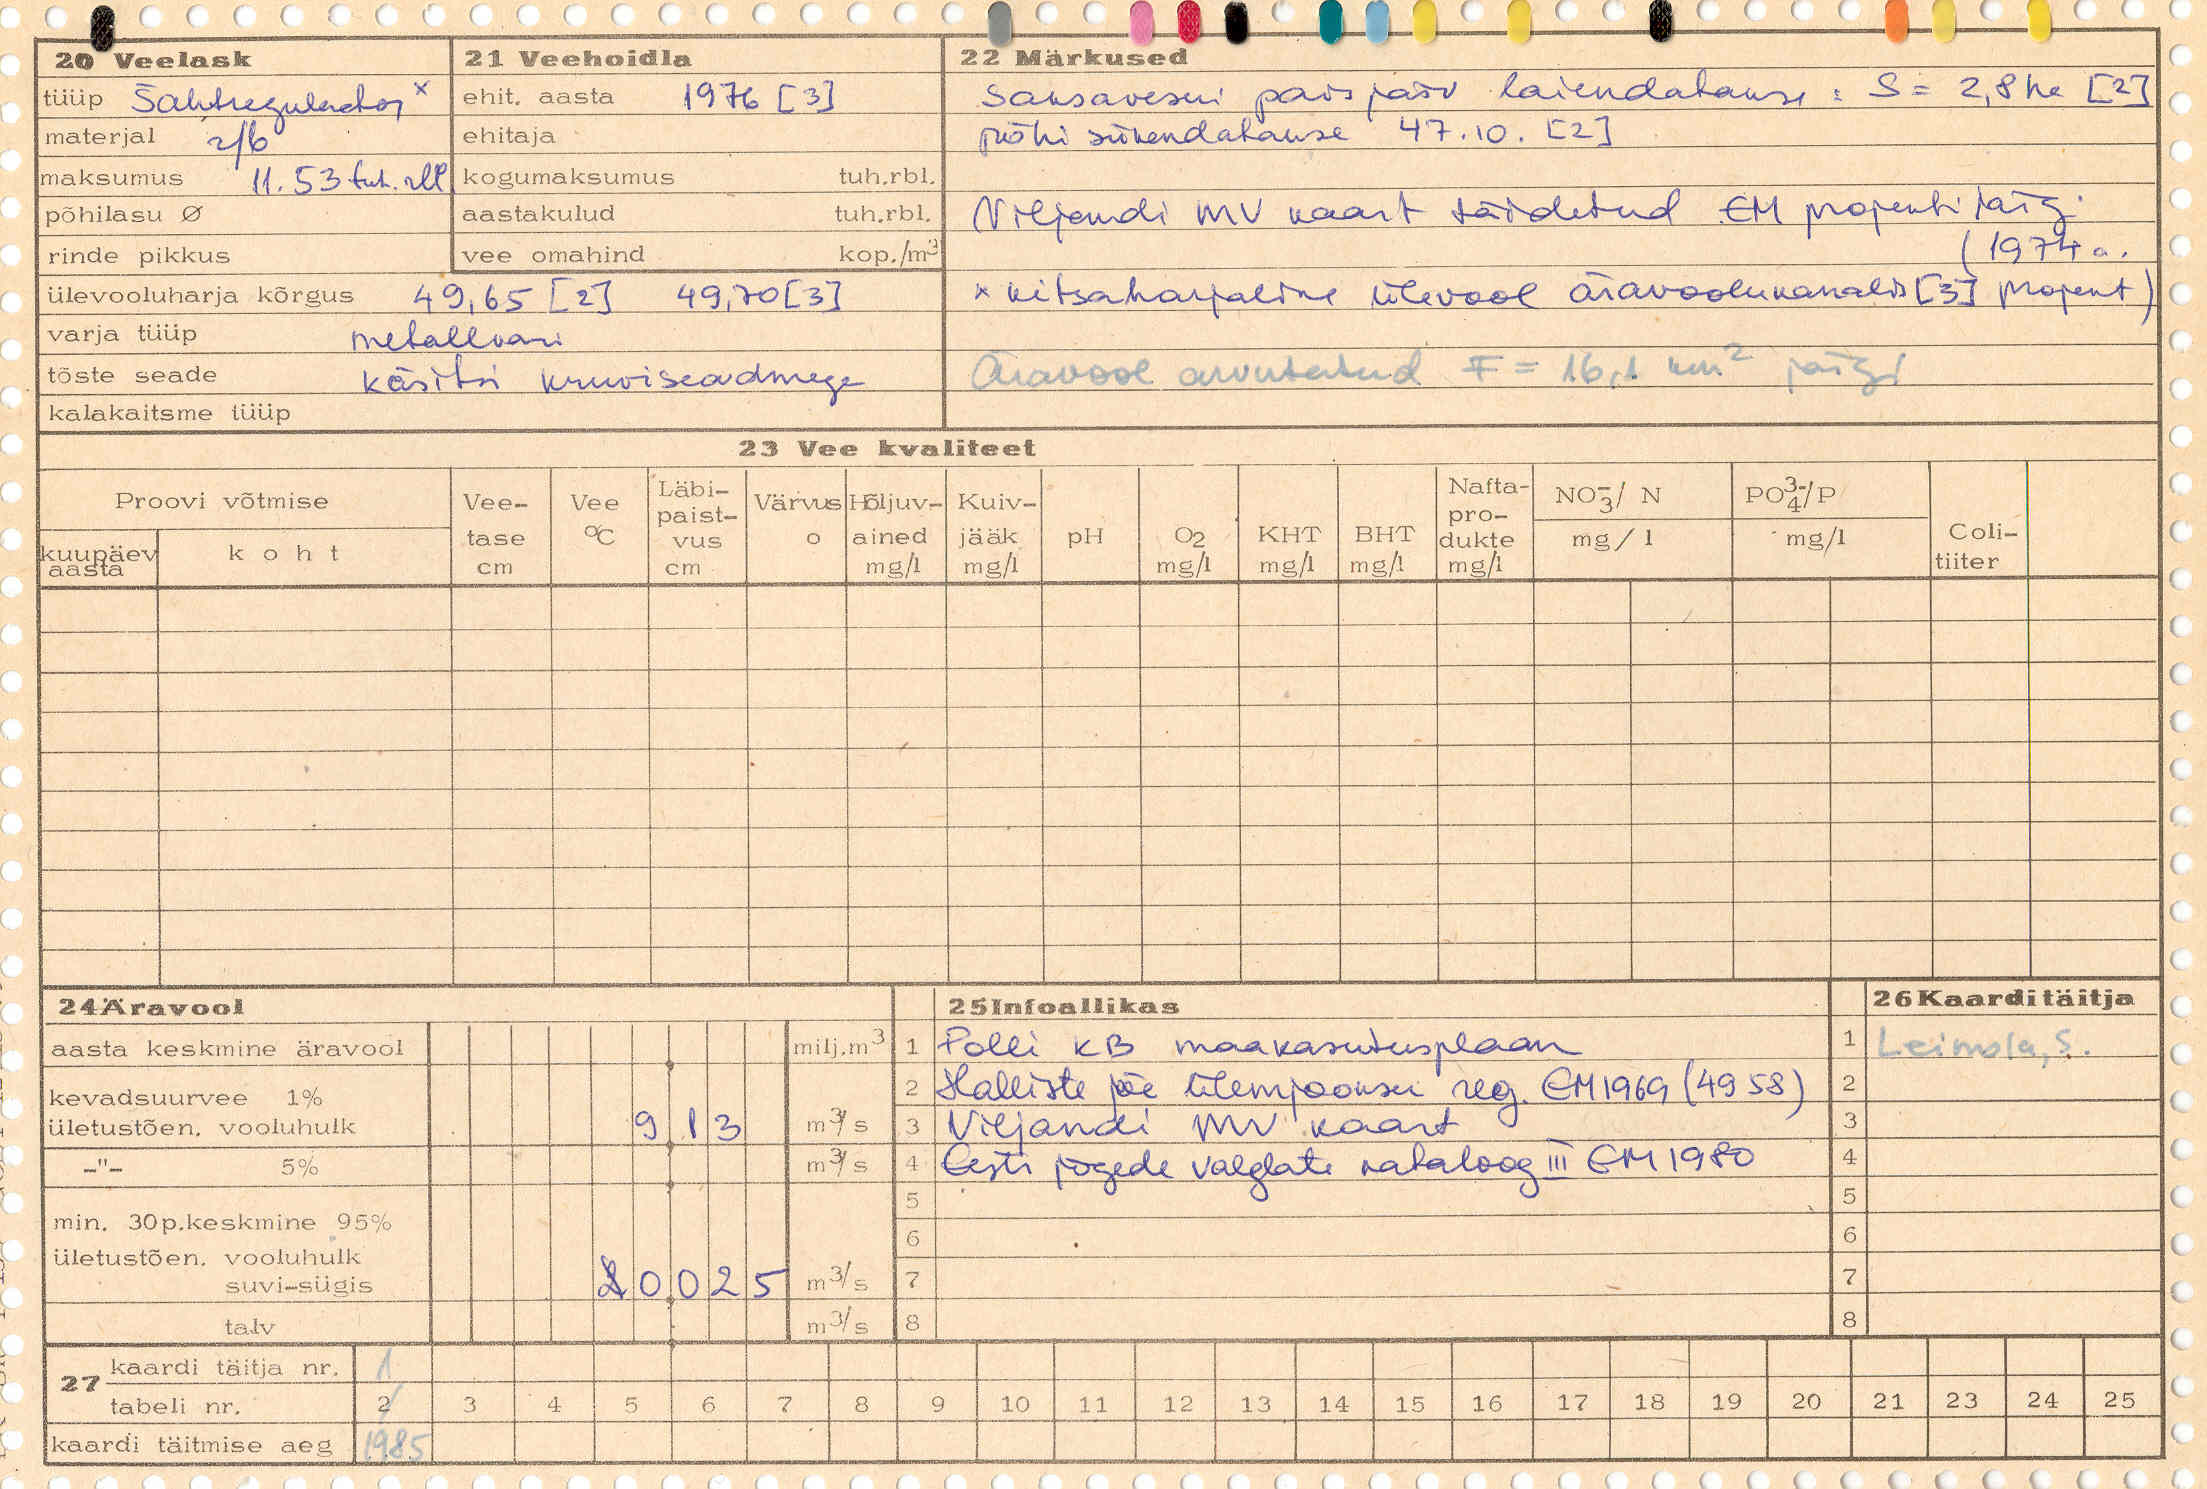 20 Veelask
tüüp Šahtregulaator x
materjal r/b
maksumus 11.53 tuh. rbl
põhilasu Ø
rinde pikkus
ülevooluharja kõrgus 49,65 [2] 49,70 [3]
varja tüüp metallvari
tõste seade käsitsi kruviseadmega
kalakaitsme tüüp
21 Veehoidla
ehit. aasta 1976 [3]
ehitaja
kogumaksumus tuh.rbl.
aastakulud tuh.rbl.
vee omahind kop./m³
22 Märkused
Saksaveski paisjärv laiendatakse : S = 2,8 ha [2]
põhi süvendatakse 47.10. [2]
Viljandi MV kaart täidetud EM projekti järgi
(1974 a.
x kitsaharjaline ülevool äravoolukanalis [3] projekt)
Äravool arvutatud F = 16,1 km² järgi
23 Vee kvaliteet
Proovi võtmise
kuupäev aasta
koht
Vee-tase cm
Vee °C
Läbi-paist-vus cm
Värvus o
Hõljuv-ained mg/l
Kuiv-jääk mg/l
pH
O2 mg/l
KHT mg/l
BHT mg/l
Nafta-pro-dukte mg/l
NO3-/ N mg/l
PO4 3-/P mg/l
Coli-tiiter
24 Äravool
aasta keskmine äravool milj.m³
kevadsuurvee 1%
ületustõen. vooluhulk 9 1 3 m³/s
-"- 5% m³/s
min. 30p.keskmine 95%
ületustõen. vooluhulk
suvi-sügis 0 0 2 5 m³/s
talv m³/s
25 Infoallikas
1 Polli KB maakasutusplaan
2 Halliste jõe ülemjooksu reg. EM 1969 (4958)
3 Viljandi MV kaart
4 Eesti jõgede valglate kataloog III EM 1980
5
6
7
8
26 Kaarditäitja
1 Leimola, S.
2
3
4
5
6
7
8
27 kaardi täitja nr. 1
tabeli nr. 2 3 4 5 6 7 8 9 10 11 12 13 14 15 16 17 18 19 20 21 23 24 25
kaardi täitmise aeg 1985